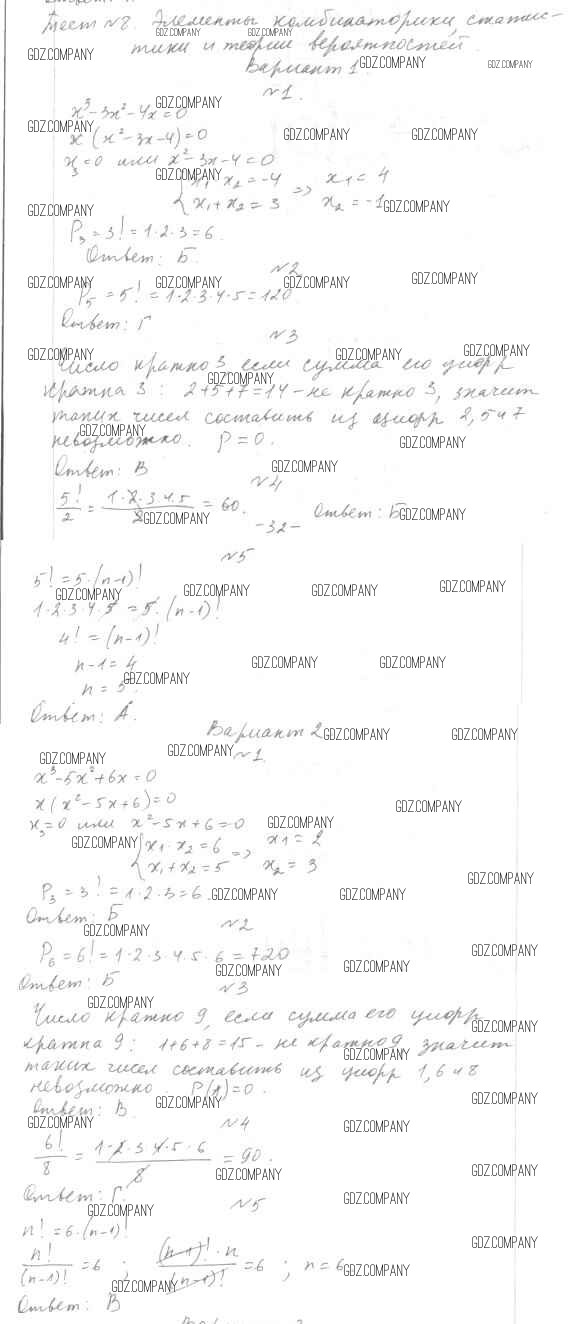 Тест №8. Элементы комбинаторики, статис-
тики и теории вероятностей.
Вариант 1
№1.
x³-3x²-4x=0
x(x²-3x-4)=0
x₃=0 или x²-3x-4=0
{x₁·x₂=-4 => x₁=4
x₁+x₂=3 x₂=-1
P₃=3!=1·2·3=6.
Ответ: Б.
№2
P₅=5!=1·2·3·4·5=120
Ответ: Г
№3
Число кратно 3 если сумма его цифр
кратна 3: 2+5+7=14 - не кратно 3, значит
таких чисел составить из цифр 2, 5 и 7
невозможно. P=0.
Ответ: В
№4
5!/2 = 1·2·3·4·5/2 = 60. Ответ: Б
-32-
№5
5!=5·(n-1)!
1·2·3·4·5=5·(n-1)!
4!=(n-1)!
n-1=4
n=5
Ответ: А.
Вариант 2
№1
x³-5x²+6x=0
x(x²-5x+6)=0
x₃=0 или x²-5x+6=0
{x₁·x₂=6 => x₁=2
x₁+x₂=5 x₂=3
P₃=3!=1·2·3=6.
Ответ: Б
№2
P₆=6!=1·2·3·4·5·6=720
Ответ: Б
№3
Число кратно 9, если сумма его цифр
кратна 9: 1+6+8=15 - не кратно 9 значит
таких чисел составить из цифр 1, 6 и 8
невозможно. P(A)=0.
Ответ: В.
№4
6!/8 = 1·2·3·4·5·6/8 = 90.
Ответ: Г.
№5
n!=6·(n-1)!
n!/(n-1)! =6 ; (n-1)!·n/(n-1)! =6 ; n=6
Ответ: В
GDZ.COMPANY